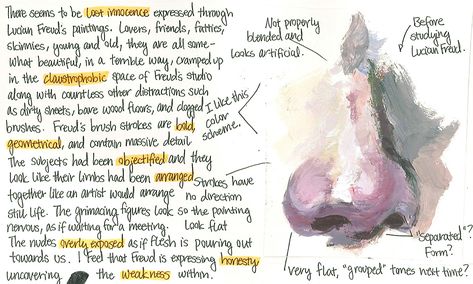 There seems to be lost innocence expressed through
Lucian Freud's paintings. Lovers, friends, fatties,
skinnies, young and old, they are all some-
what beautiful, in a terrible way, cramped up
in the claustrophobic space of Freud's studio
along with countless other distractions such
as dirty sheets, bare wood floors, and clogged
brushes. Freud's brush strokes are bold,
geometrical, and contain massive detail
The subjects had been objectified and they
look like their limbs had been arranged
together like an artist would arrange
still life. The grimacing figures look
nervous, as if waiting for a meeting.
The nudes overly exposed as if flesh is pouring out
towards us. I feel that Freud is expressing honesty,
uncovering the weakness within.
Not properly
blended and
looks artificial.
Before
studying
Lucian Freud.
I like this
color
scheme.
Strokes have
no direction
so the painting
look flat
"separated"?
Form?
very flat, "grouped" tones next time?